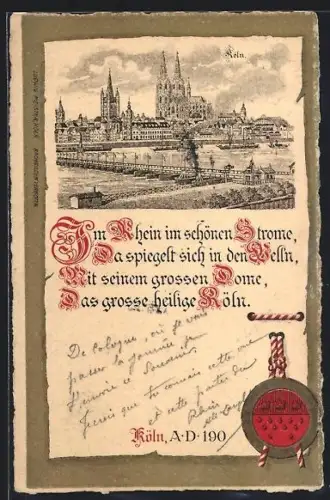 Köln.
Im Rhein im schönen Strome,
Da spiegelt sich in den Welln,
Mit seinem grossen Dome,
Das grosse heilige Köln.
De Cologne, où je vais
passer la journée je
t'envoie ce Souvenir.
Je crois que tu connais cette
et cette partie du
Rhin
Köln, A·D·190